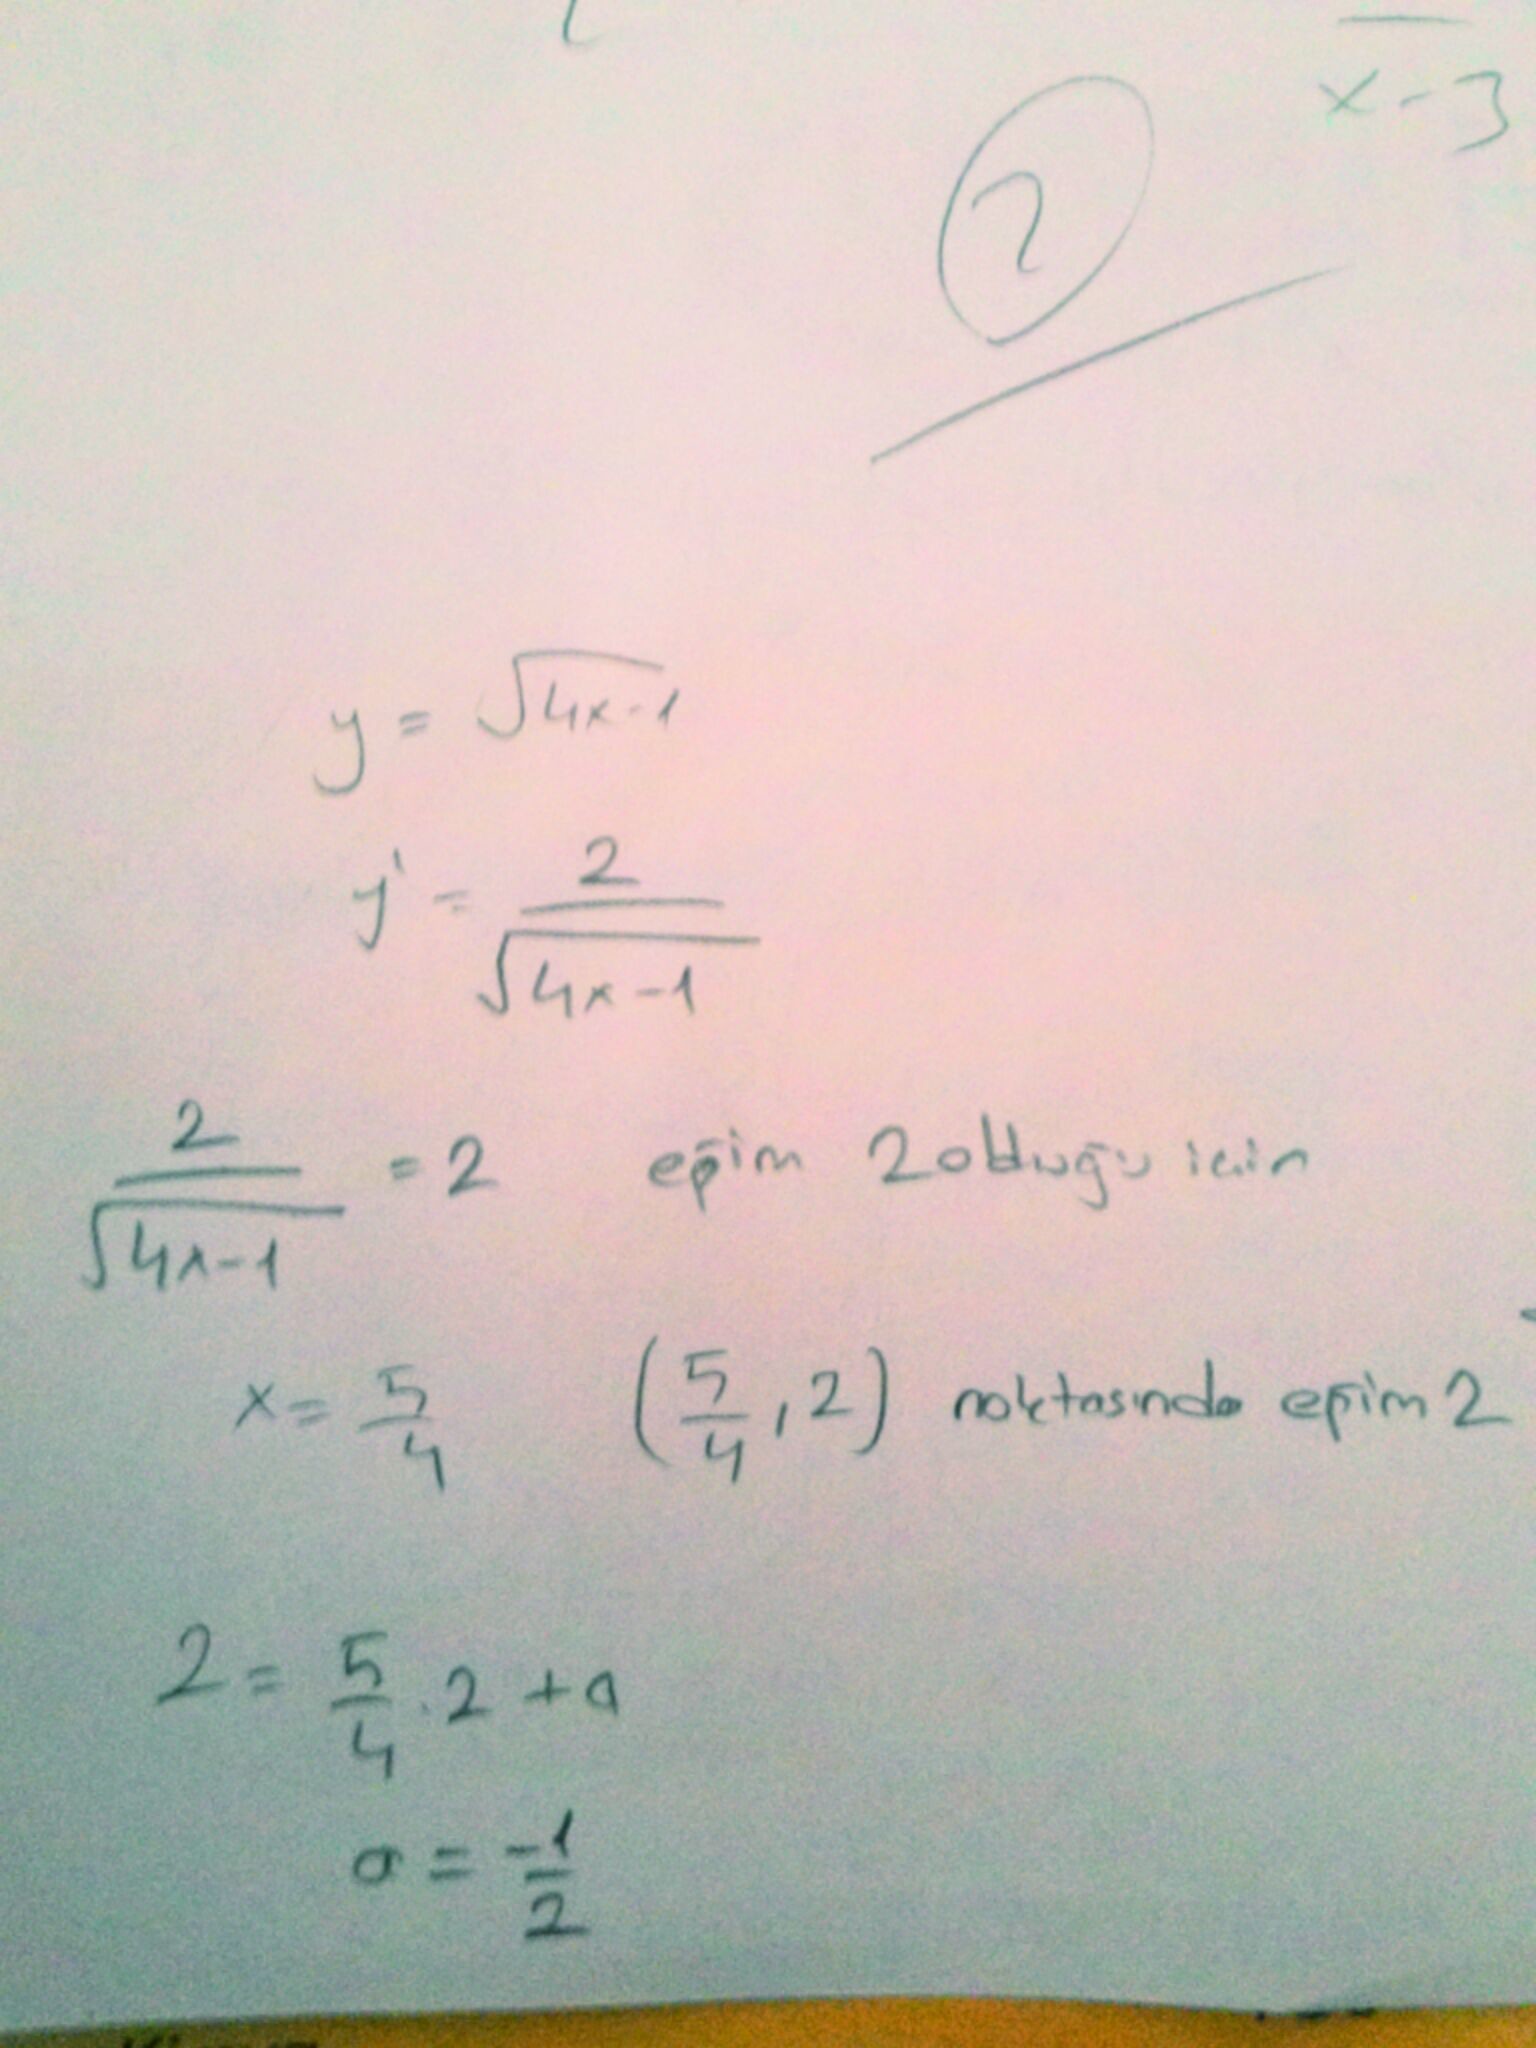 x-3
2
y = √4x-1
y' = 2/√4x-1
2/√4x-1 = 2 eğim 2 olduğu için
x = 5/4 (5/4, 2) noktasında eğim 2
2 = 5/4 . 2 + a
a = -1/2